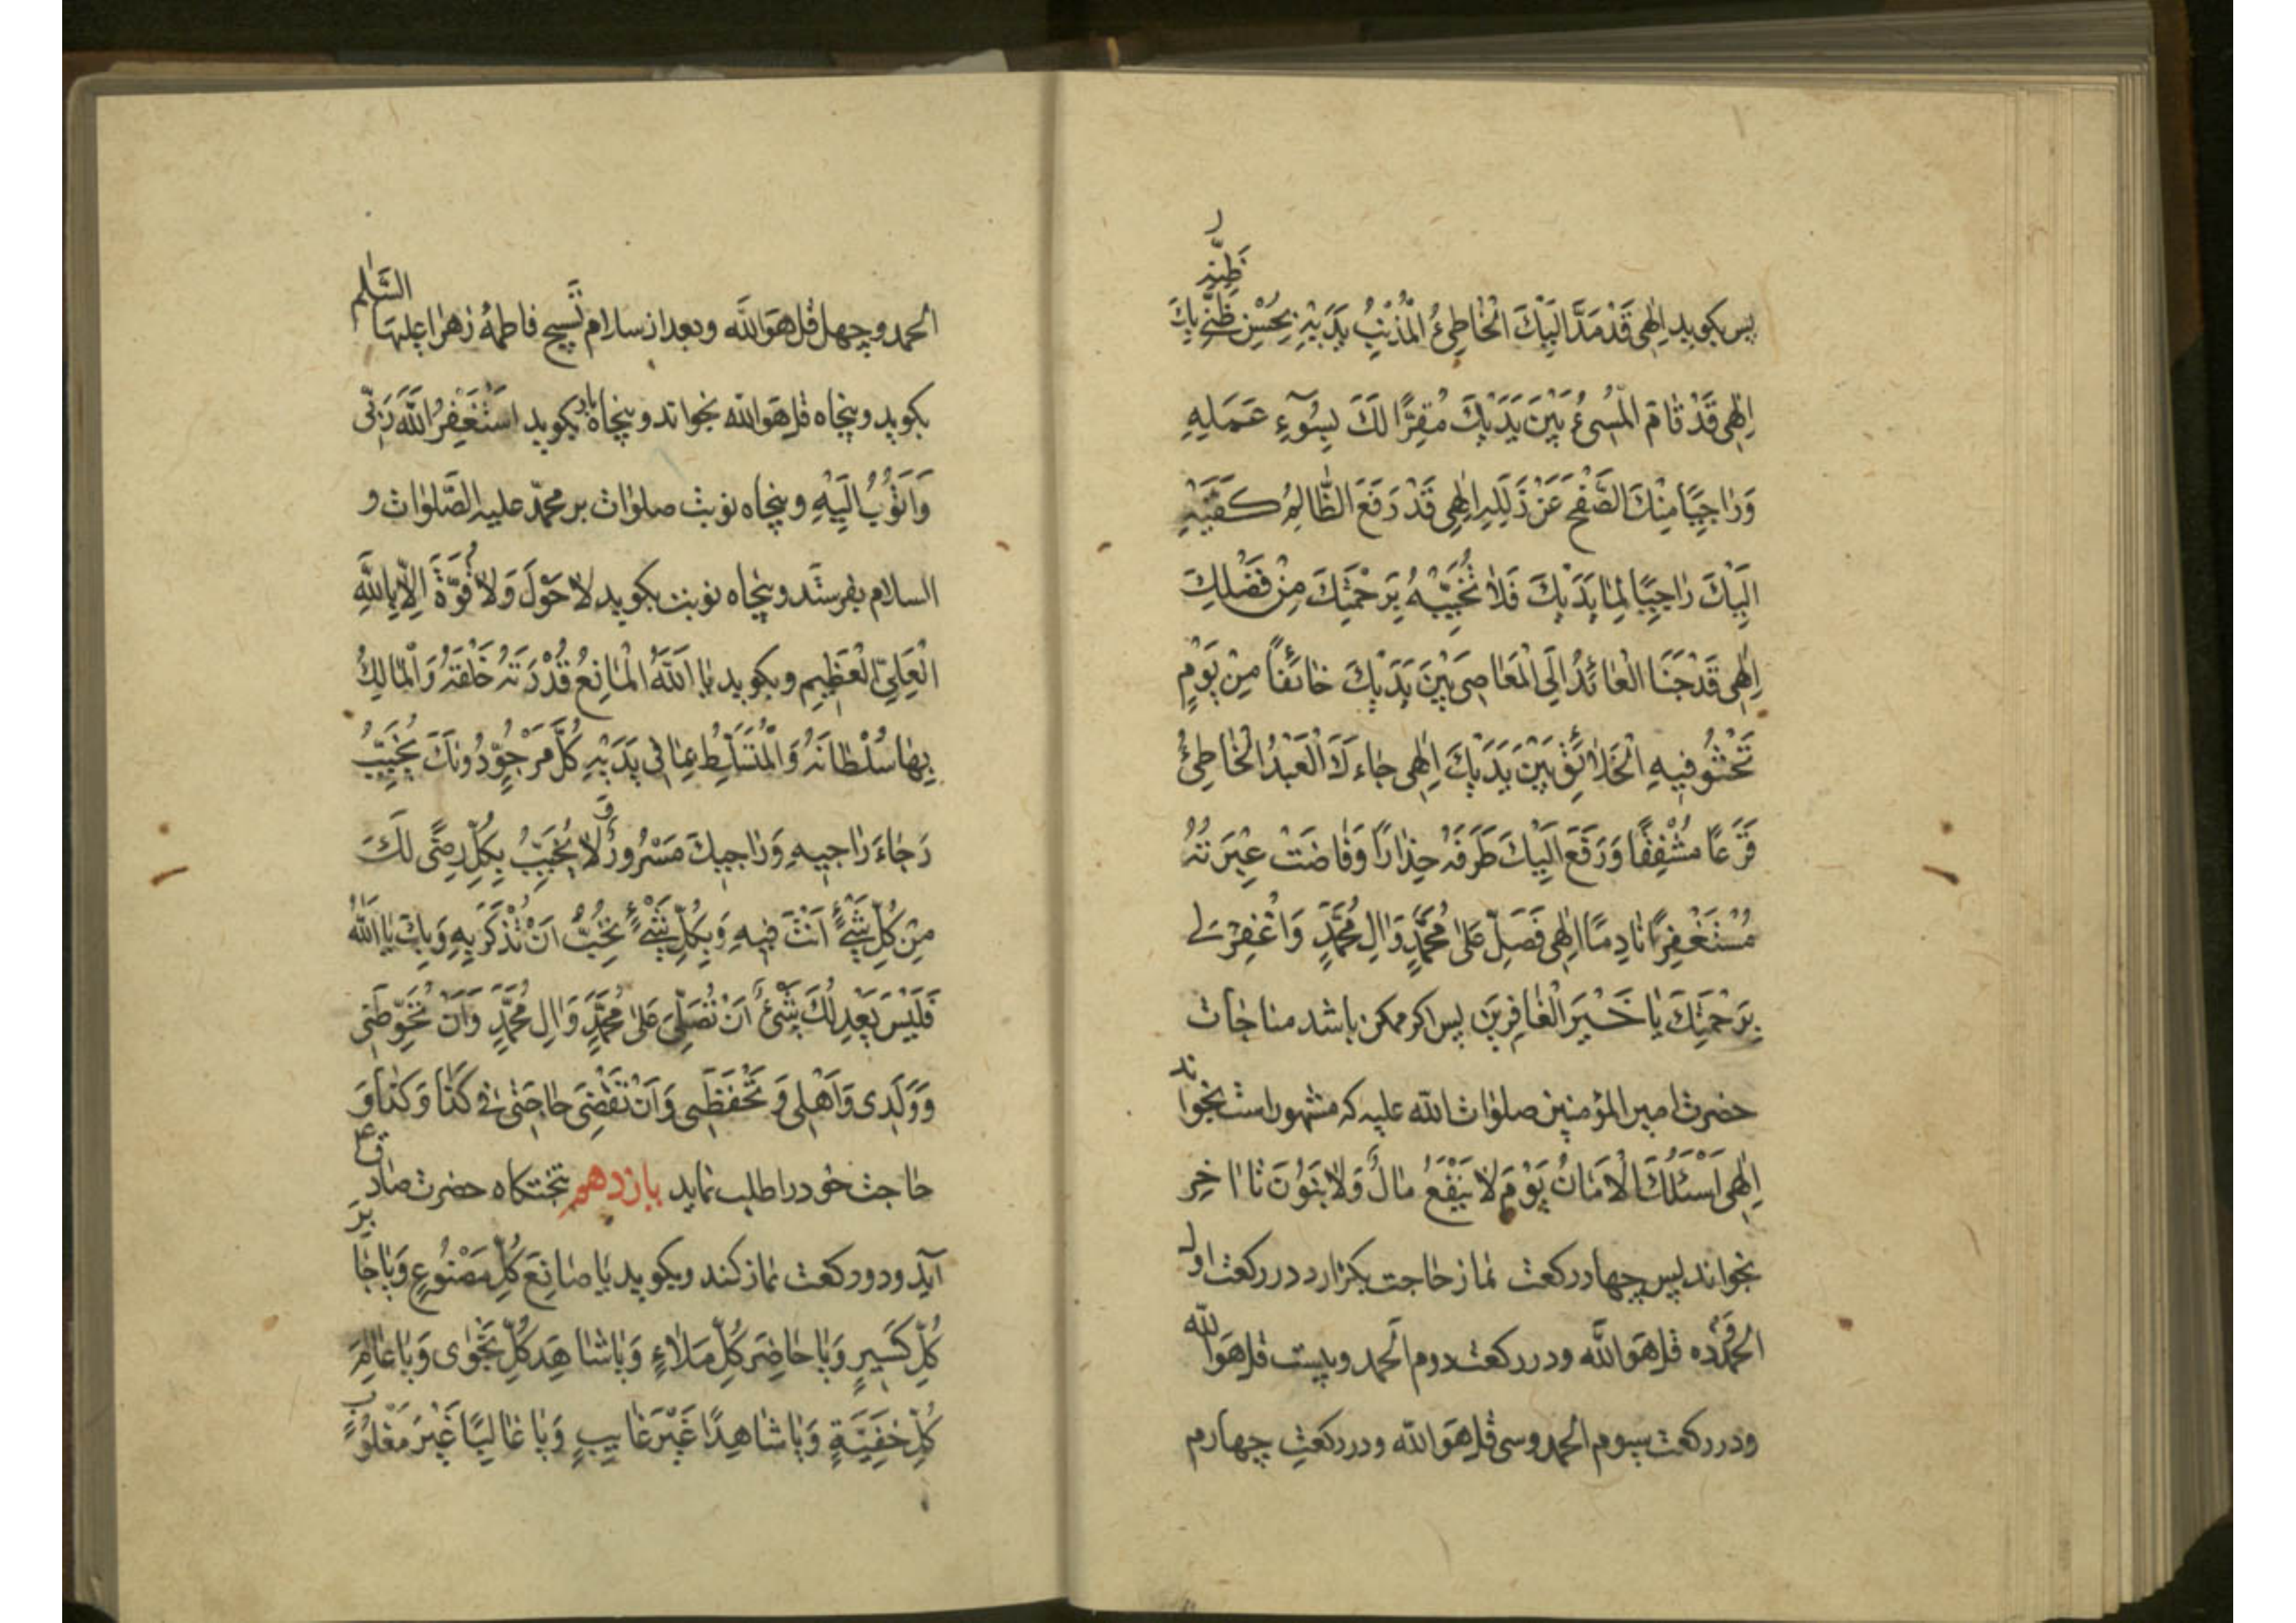 پس بکوید اِلٰهی قَدْ مَدَّ اِلَیْكَ الْخٰاطِیءُ الْمُذْنِبُ یَدَیْهِ بِحُسْنِ ظَنِّهِ بِكَ
اِلٰهی قَدْ قٰامَ الْمُسیءُ بَیْنَ یَدَیْكَ مُقِرًّا لَكَ بِسُوٓءِ عَمَلِهِ
وَرٰاجِیًا مِنْكَ الصَّفْحَ عَنْ زَلَلِهِ اِلٰهِی قَدْ رَفَعَ الظّٰالِمُ كَفَّیْهِ
اِلَیْكَ رٰاجِیًا لِمٰا یَدَیْكَ فَلاٰ تُخَیِّبْهُ بِرَحْمَتِكَ مِنْ فَضْلِكَ
اِلٰهی قَدْ جَثَا الْعٰائِدُ اِلَی الْمَعٰاصی بَیْنَ یَدَیْكَ خٰائفًا مِنْ یَوْمٍ
تَجْثُو فیهِ الْخَلاٰئِقُ بَیْنَ یَدَیْكَ اِلٰهی جٰاءَكَ الْعَبْدُ الْخٰاطِیءُ
فَزِعًا مُشْفِقًا وَرَفَعَ اِلَیْكَ طَرَفَهُ حِذٰارًا وَفٰاضَتْ عِبْرَتُهُ
مُسْتَغْفِرًا نٰادِمًا اِلٰهی فَصَلِّ عَلیٰ مُحَمَّدٍ وَاٰلِ مُحَمَّدٍ وَاغْفِرْ لی
بِرَحْمَتِكَ یٰا خَیْرَ الْغٰافِرینَ پس اکر ممکن باشد مناجات
حضرت امیر المؤمنین صلوٰات اللّه علیه که مشهور است بخواند
اِلٰهی اَسْئَلُكَ الْاَمٰانَ یَوْمَ لاٰ یَنْفَعُ مٰالٌ وَلاٰ بَنُوْنَ تا اٰخِر
بخواند پس چهار رکعت نماز حاجت بکزارد در رکعت اول
الحمد و ده قل هو اللّه و در رکعت دوم الحمد و بیست قل هو اللّه
و در رکعت سیوم الحمد و سی قل هو اللّه و در رکعت چهارم
الحمد و چهل قل هو اللّه و بعد از سلام تسبیح فاطمهٔ زهرا علیها السّلٰم
بکوید و پنجاه قل هو اللّه بخواند و پنجاه بار بکوید اَسْتَغْفِرُ اللّٰهَ رَبّی
وَاَتُوْبُ اِلَیْهِ و پنجاه نوبت صلوٰات بر محمّد علیه الصَّلوٰات و
السلام بفرستد و پنجاه نوبت بکوید لاٰ حَوْلَ وَلاٰ قُوَّةَ اِلّاٰ بِاللّٰهِ
الْعَلِیِّ الْعَظیمِ و بکوید یٰا اَللّٰهُ الْمٰانِعُ قُدْرَتَهُ خَلْقَهُ وَالْمٰالِكُ
بِهٰا سُلْطٰانَهُ وَالْمُتَسَلِّطُ بِمٰا فی یَدَیْهِ كُلُّ مَرْجُوٍّ دُونَكَ یُخَیِّبُ
رَجٰاءَ رٰاجیهِ وَرٰاجیكَ مَسْرُورٌ وَلاٰ یُخَیَّبُ بِكُلِّ رِضًی لَكَ
مِنْ كُلِّ شَیْءٍ اَنْتَ فیهِ وَبِكُلِّ شَیْءٍ تُحِبُّ اَنْ تُذْكَرَ بِهِ وَبِكَ یٰا اَللّٰهُ
فَلَیْسَ یَعْدِلُكَ شَیْءٌ اَنْ تُصَلِّیَ عَلیٰ مُحَمَّدٍ وَاٰلِ مُحَمَّدٍ وَاَنْ تُحَوِّطَنی
وَوَلَدی وَاَهْلی وَ تَحْفَظَنی وَاَنْ تَقْضِیَ حٰاجَتی فی كَذٰا وَكَذٰا وَ
حاجت خود را طلب نماید یازدهم بتختکاه حضرت صادق ع بر
آید و دو رکعت نماز کند و بکوید یٰا صٰانِعَ كُلِّ مَصْنُوعٍ وَیٰا جٰابِرَ
كُلِّ كَسیرٍ وَیٰا حٰاضِرَ كُلِّ مَلاٰءٍ وَیٰا شٰاهِدَ كُلِّ نَجْوٰی وَیٰا عٰالِمَ
كُلِّ خَفِیَّةٍ وَیٰا شٰاهِدًا غَیْرَ غٰایبٍ وَیٰا غٰالِبًا غَیْرَ مَغْلُوبٍ